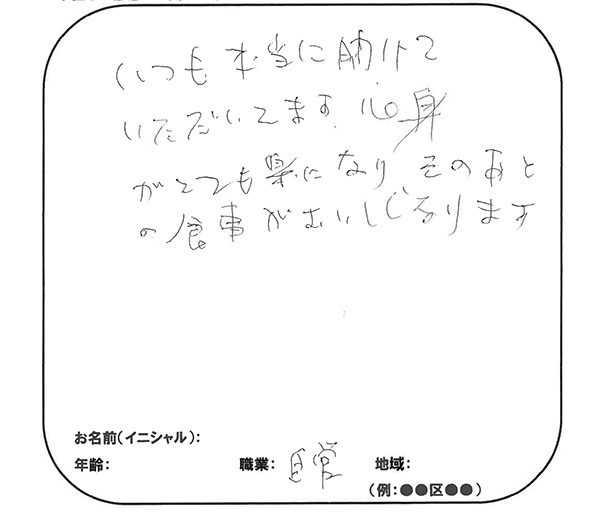 いつも本当に助けて
いただいてます。心身
がとても楽になり そのあと
の食事がおいしくなります
お名前(イニシャル):
年齢:
職業: 自営
地域:
(例:●●区●●)